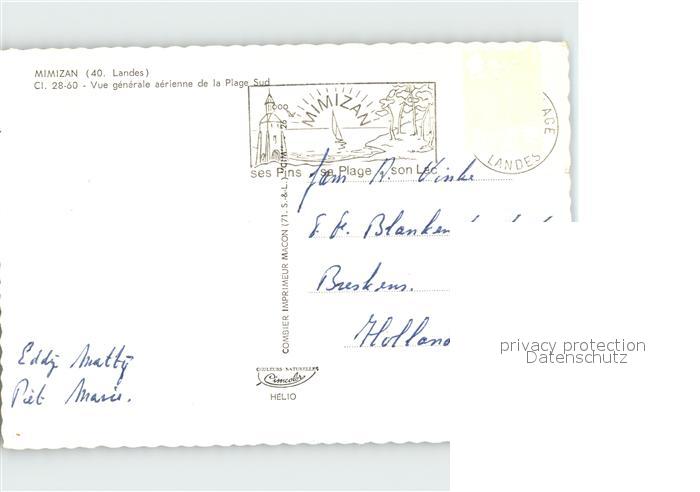 MIMIZAN (40. Landes)
Cl. 28-60 - Vue générale aérienne de la Plage Sud
MIMIZAN
ses Pins sa Plage son Lac
AGE
LANDES
COMBIER IMPRIMEUR MACON (71. S.-&-L.) "CIM"
Fam A. Vinke
Blanken
Breskens.
Holland
Eddy Matty
Piet Marie.
COULEURS NATURELLES
Cimcolor
HÉLIO
privacy protection
Datenschutz